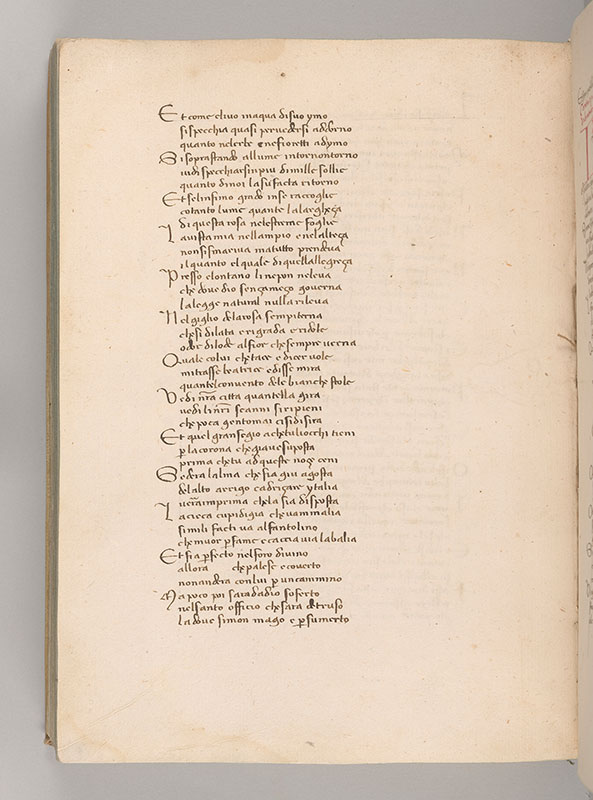 Et come clivo inaqua disuo ymo
sispecchia quasi pervedersi adorno
quanto nelerbe enefioretti adymo
Si soprastando allume intornontorno
vidi specchiarsinpiu dimille sollie
quanto dinoi lasufacta ritorno
Et selinfimo grado inse raccoglie
cotanto lume quante lalargheça
di questa rosa nelestreme foglie
La vista mia nellampio enelalteça
nonsismariva matutto prendeva
il quanto el quale di quellallegreça
Presso elontano li nepon neleva
che dove dio sença meço governa
la legge natural nulla rileva
Nel giglio dela rosa sempiterna
chesi dilata erigrada eridole
odor dilode alsior chesempre verna
Quale colui chetace edicer vole
mitrasse beatrice edisse mira
quante convento dele bianche stole
Vedi nr̄a citta quantella gira
vedi linr̄i scanni siripieni
che poca gentomai cisidisira
Et quel gransegio achetuliocchi tieni
p̱ la corona chegiavesuposta
prima chetu adqueste noçe ceni
Sedera lalma chefia giu agosta
delalto arrigo cadriçare ytalia
verra inprima chela sia disposta
La cieca cupidigia chevammalia
simili facti va alfantolino
chemuor p̱ fame ecaccia via labalia
Et fia p̱fecto nelforo divino
allora chepalese ecoverto
nonandera conlui p̱ uncammino
Ma poco poi saradadio soferto
nelsanto officio chesara detruso
la dove simon mago e p̱ suo merto